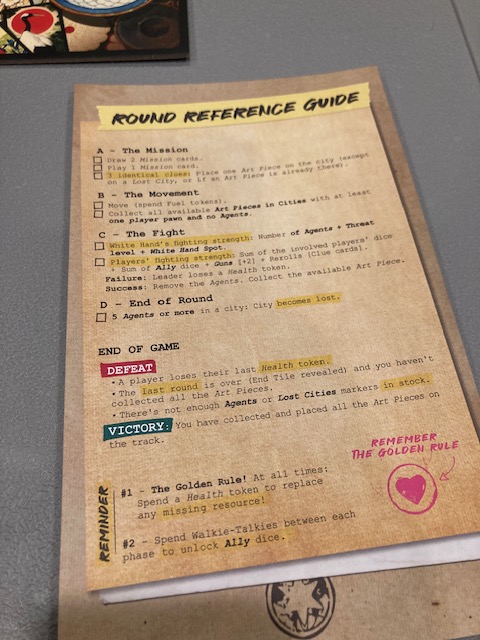 ROUND REFERENCE GUIDE
A - The Mission
Draw 2 Mission cards.
Play 1 Mission card.
3 identical clues: Place one Art Piece on the city (except
on a Lost City, or if an Art Piece is already there).
B - The Movement
Move (spend Fuel tokens).
Collect all available Art Pieces in Cities with at least
one player pawn and no Agents.
C - The Fight
White Hand's fighting strength: Number of Agents + Threat
level + White Hand Spot.
Players' fighting strength: Sum of the involved players' dice
+ Sum of Ally dice + Guns [+2] + Rerolls (Clue cards).
Failure: Leader loses a Health token.
Success: Remove the Agents. Collect the available Art Piece.
D - End of Round
5 Agents or more in a city: City becomes lost.
END OF GAME
DEFEAT
• A player loses their last Health token.
• The last round is over (End Tile revealed) and you haven't
collected all the Art Pieces.
• There's not enough Agents or Lost Cities markers in stock.
VICTORY: You have collected and placed all the Art Pieces on
the track.
REMEMBER
THE GOLDEN RULE
REMINDER
#1 - The Golden Rule! At all times:
Spend a Health token to replace
any missing resource!
#2 - Spend Walkie-Talkies between each
phase to unlock Ally dice.